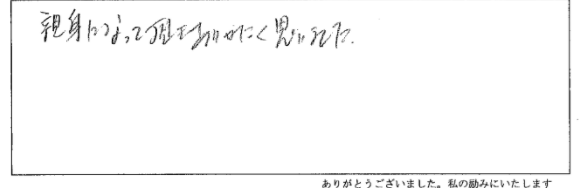 親身になって頂きありがたく思いました。
ありがとうございました。私の励みにいたします